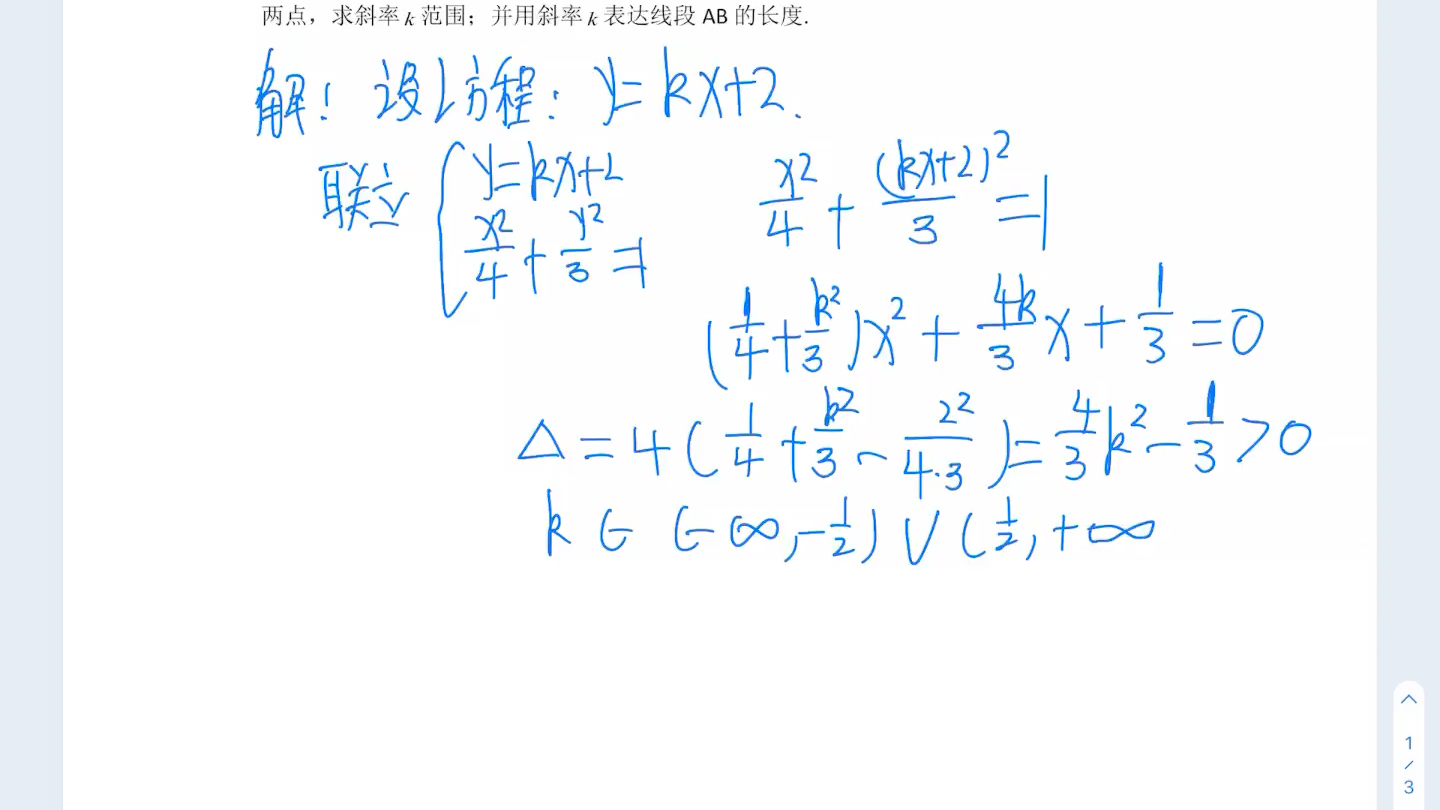 两点，求斜率 k 范围；并用斜率 k 表达线段 AB 的长度.
解! 设 l 方程: y=kx+2.
联立 { y=kx+2
x²/4 + y²/3 =1
x²/4 + (kx+2)²/3 =1
(1/4+k²/3)x² + 4k/3 x + 1/3 =0
Δ = 4(1/4+k²/3 - 2²/4·3) = 4/3 k² - 1/3 >0
k ∈ (-∞,-1/2) ∪ (1/2,+∞
1
/
3